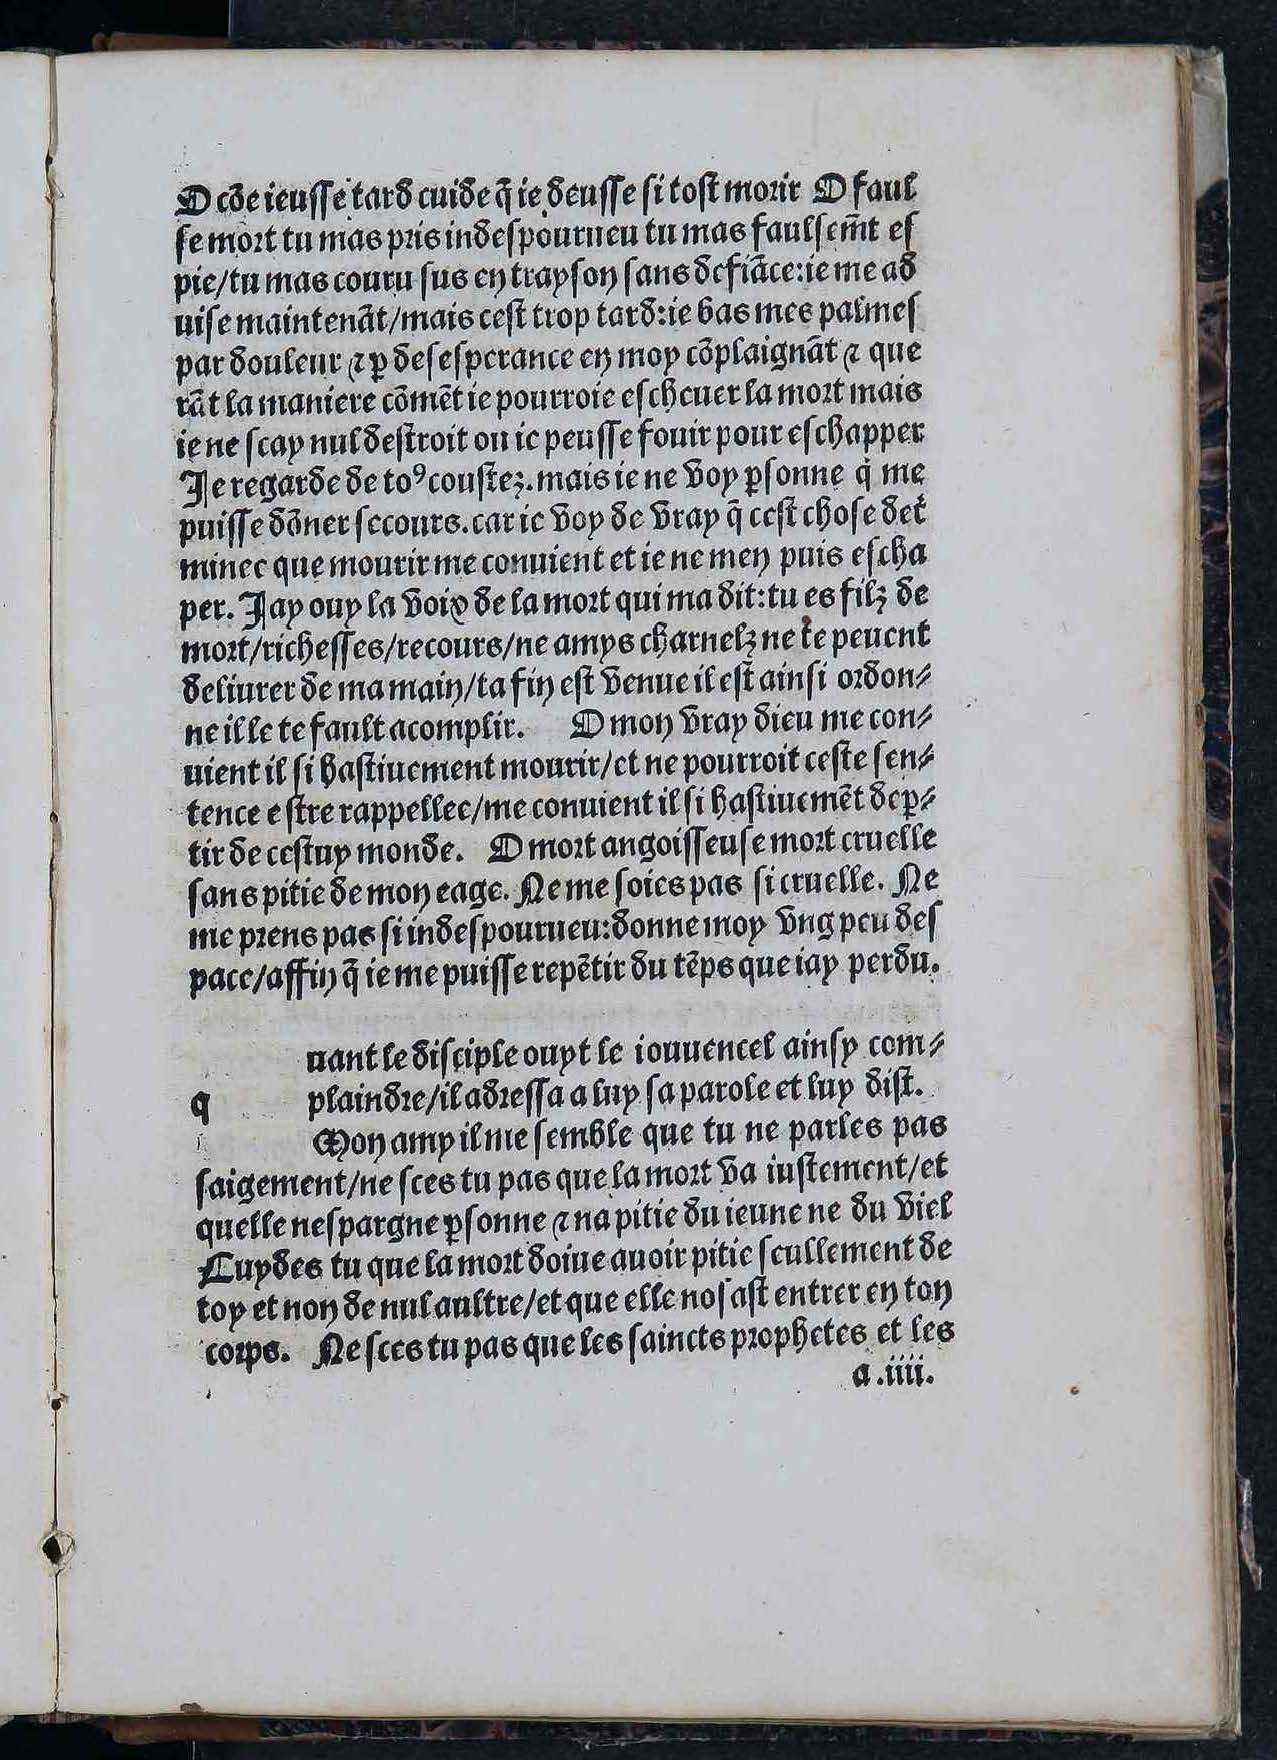 O cōe ieusse tard cuide q̄ ie deusse si tost morir O faul
se mort tu mas pris indespourueu tu mas faulsem̄t es
pie/tu mas couru sus en trayson sans defiāce:ie me ad
uise maintenāt/mais cest trop tard:ie bas mes palmes
par douleur ⁊ ꝑ desesperance en moy cōplaignāt ⁊ que
rāt la maniere cōmēt ie pourroie escheuer la mort mais
ie ne scay nul destroit ou ie peusse fouir pour eschapper
Je regarde de toꝰ coustez. mais ie ne voy ꝑsonne q̄ me
puisse dōner secours. car ie voy de vray q̄ cest chose det̄
minee que mourir me conuient et ie ne men puis escha
per. Jay ouy la voix de la mort qui ma dit: tu es filz de
mort/richesses/recours/ne amys charnelz ne te peuent
deliurer de ma main/ta fin est venue il est ainsi ordon⸗
ne il le te fault acomplir. O mon vray dieu me con⸗
uient il si hastiuement mourir/et ne pourroit ceste sen⸗
tence estre rappellee/me conuient il si hastiuemēt deꝑ⸗
tir de cestuy monde. O mort angoisseuse mort cruelle
sans pitie de mon eage. Ne me soies pas si cruelle. Ne
me prens pas si indespourueu: donne moy vng peu des
pace/affin q̄ ie me puisse repētir du tēps que iay perdu.
uant le disciple ouyt le iouuencel ainsy com⸗
q plaindre/il adressa a luy sa parole et luy dist.
Mon amy il me semble que tu ne parles pas
saigement/ne sces tu pas que la mort va iustement/et
quelle nespargne ꝑsonne ⁊ na pitie du ieune ne du viel
Cuydes tu que la mort doiue auoir pitie seullement de
toy et non de nul aultre/et que elle nosast entrer en ton
corps. Ne sces tu pas que les saincts prophetes et les
a .iiii.